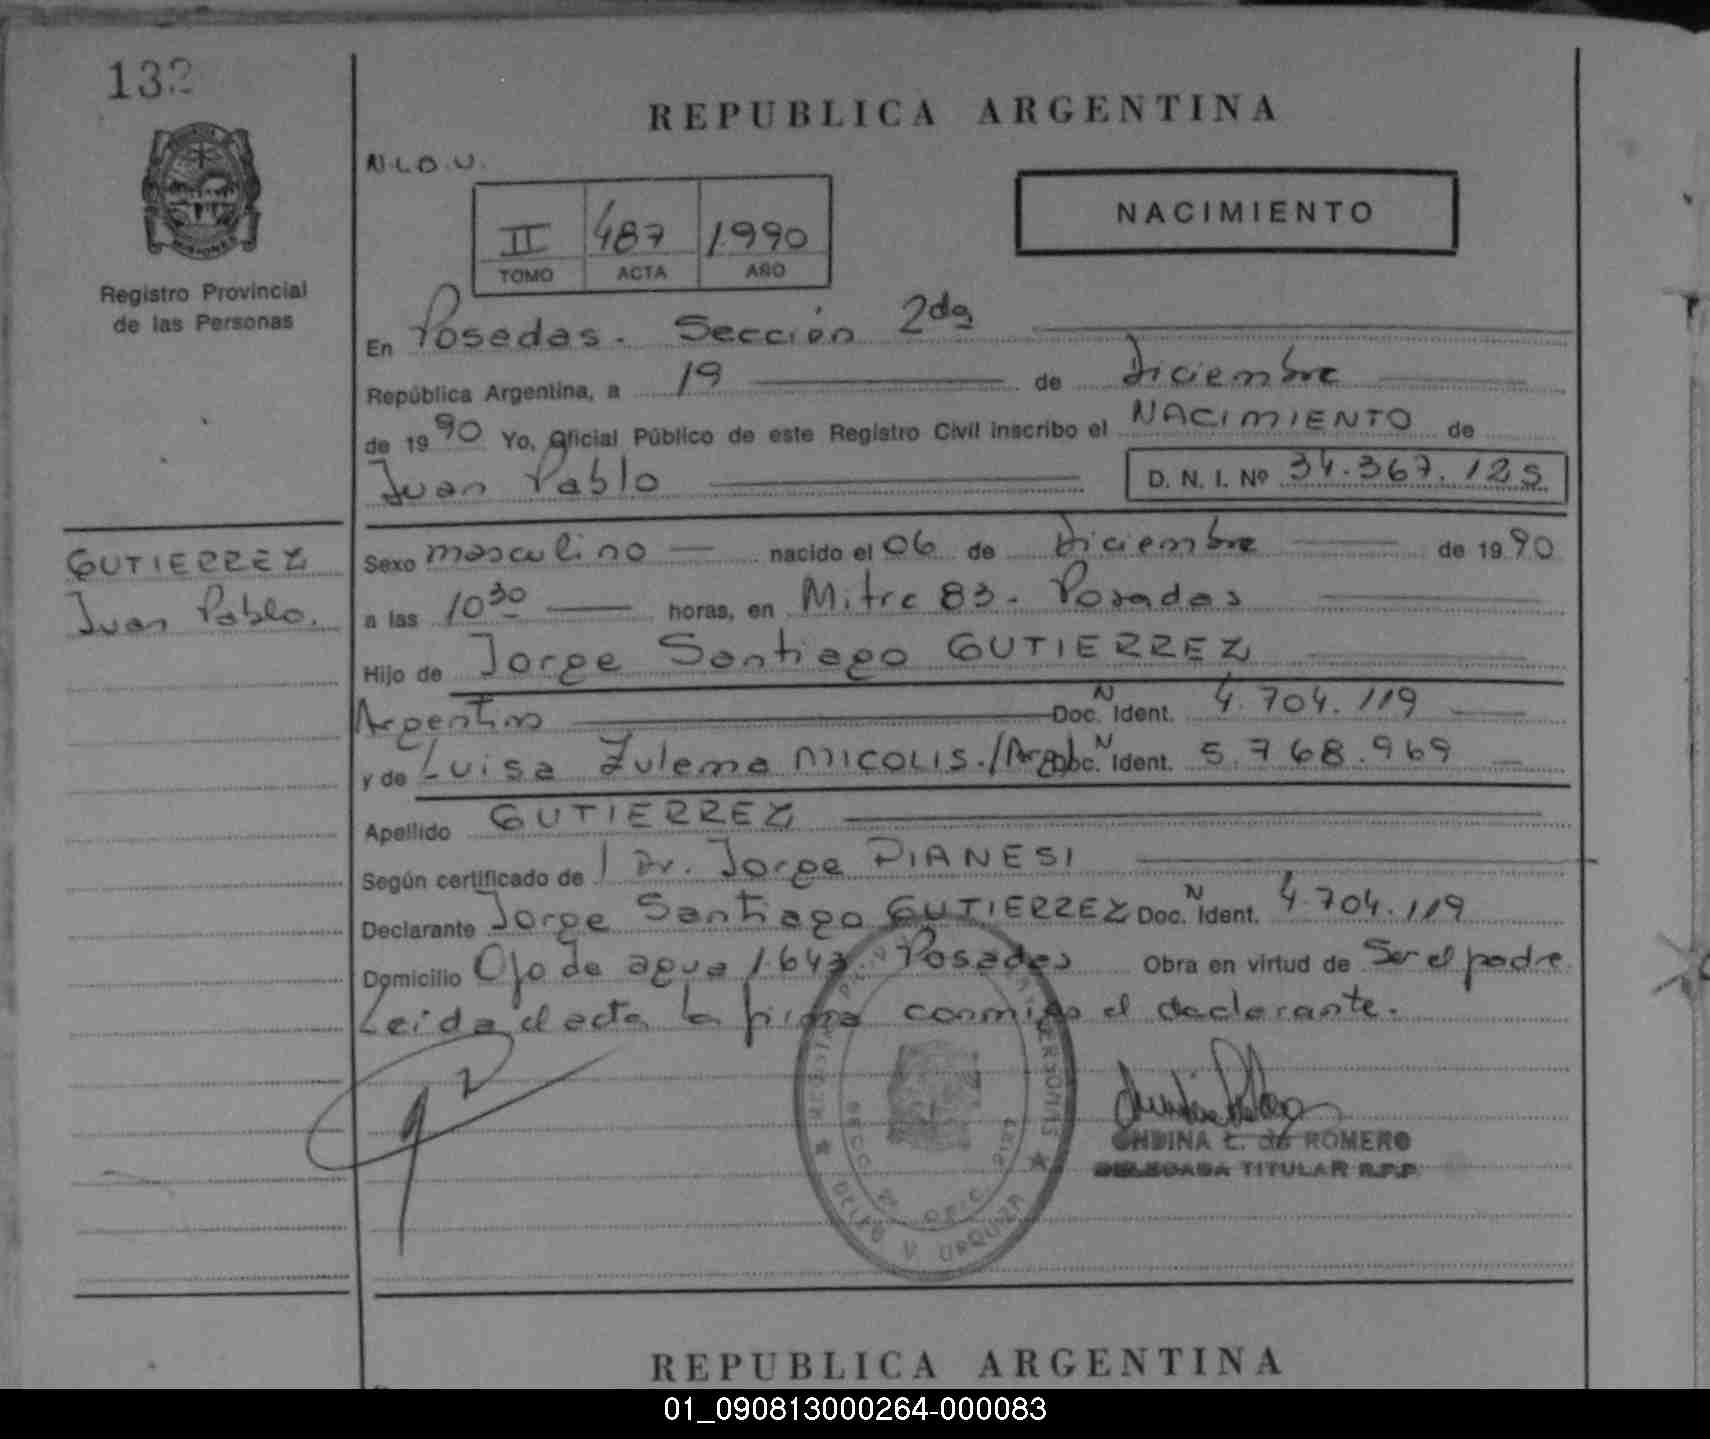 132
REPUBLICA ARGENTINA
N.L.O.V.
NACIMIENTO
II 487 1990
TOMO ACTA AÑO
Registro Provincial
de las Personas
En Posadas. Sección 2da
República Argentina, a 19 de Diciembre
de 1990 Yo, Oficial Público de este Registro Civil inscribo el NACIMIENTO de
Juan Pablo D. N. I. Nº 34.367.125
GUTIERREZ
Juan Pablo.
Sexo masculino nacido el 06 de Diciembre de 1990
a las 10 30 horas, en Mitre 83. Posadas
Hijo de Jorge Santiago GUTIERREZ
Argentino Doc. N Ident. 4.704.119
y de Luisa Zulema MICOLIS./Arg Doc. N Ident. 5.768.969
Apellido GUTIERREZ
Según certificado de Dr. Jorge PIANESI
Declarante Jorge Santiago GUTIERREZ Doc. N Ident. 4.704.119
Domicilio Ojo de agua Posadas Obra en virtud de Ser el padre
Leida el acta la firma conmigo el declarante.
ONDINA E. de ROMERO
DELEGADA TITULAR R.P.P.
REPUBLICA ARGENTINA
01_090813000264-000083